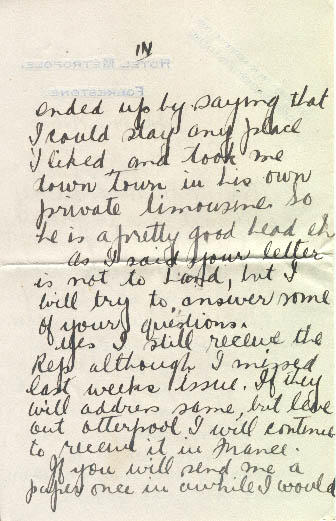 IV
HOTEL METROPOLE.
FOLKESTONE
ended up by saying that
I could stay any place
I liked and took me
down town in his own
private limousine so
he is a pretty good head eh
as I said your letter
is not to hand, but I
will try to answer some
of your questions.
yes I still receive the
Rep although I missed
last weeks issue. If they
will address same, but leave
out otterpool I will continue
to receive it in France.
If you will send me a
paper once in awhile I would